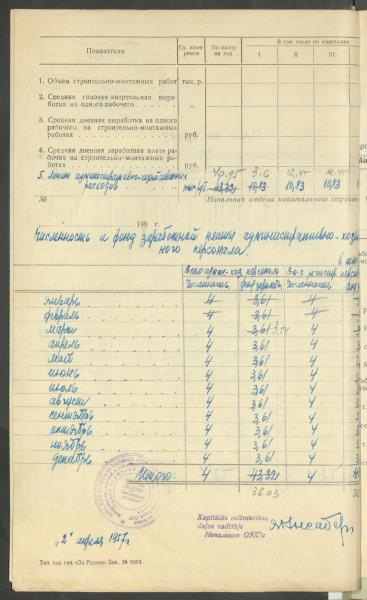 Показатели
Ед. изме рения
По плану на год
В том числе по кварталам
I
II
III
1. Объем строительно-монтажных работ тыс. р.
2. Средняя годовая-квартальная выра-
ботка на одного рабочего . . . „
3. Средняя дневная выработка на одного
рабочего на строительно-монтажных
работах . . . руб.
4. Средняя дневная заработная плата ра-
бочих на строительно-монтажных ра-
ботах . . . руб.
40.95 3.6 12.45 12.45
5. Лимит административно-хозяйственных
расходов тыс. руб. 43.32 10,83 10,83 10,83
№
Начальник отдела капитального строит
195 г.
Численность и фонд заработной платы административно-хозяй
ного персонала.
Всего админ.-хоз. персонала
Численность фонд зарплаты Численность
январь 4 3,61 4
февраль 4 3,61 4
март 4 3,61 3.54 4
апрель 4 3,61 4
май 4 3,61 4
июнь 4 3,61 4
июль 4 3,61 4
август 4 3,61 4
сентябрь 4 3,61 4
октябрь 4 3,61 4
ноябрь 4 3,61 4
декабрь 4 3,61 4
Итого 4 3,5 43,32 4 3,5
36.03
Kapitālās celtniecības
daļas vadītājs
Начальник ОКС'а
„2" апреля 1957 г.
Тип. изд. газ. «За Родину». Зак. №